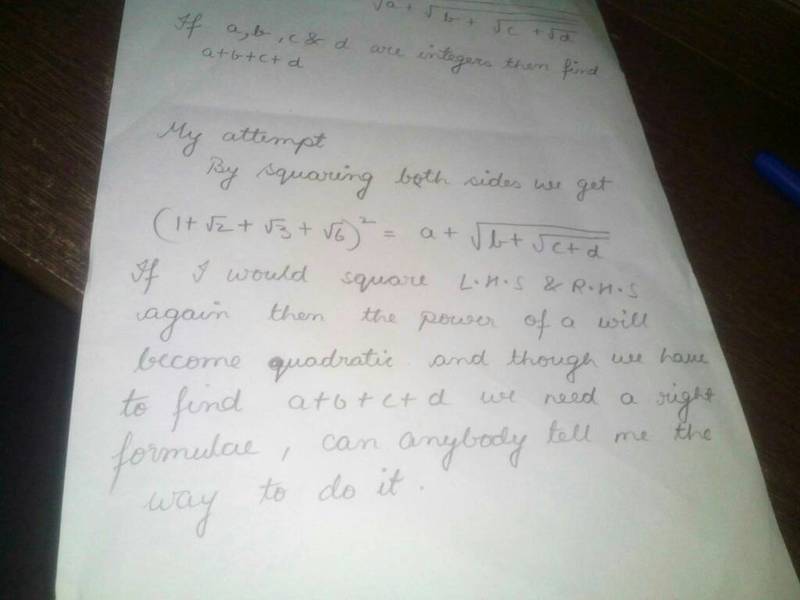 √a + √b + √c + √d
If a,b,c & d are integers then find
a+b+c+d
My attempt
By squaring both sides we get
(1+√2+√3+√6)² = a+√b+√c+d
If I would square L.H.S & R.H.S
again then the power of a will
become quadratic and though we have
to find a+b+c+d we need a right
formulae, can anybody tell me the
way to do it.